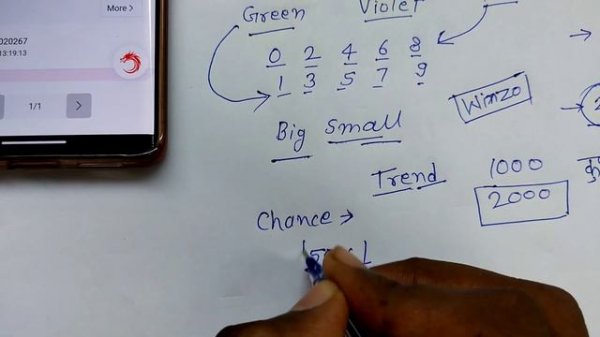 More >
020267
13:19:13
1/1
>
Green Violet
0 2 4 6 8
1 3 5 7 9
Big Small
Winzo
Trend 1000
2000
Chance →